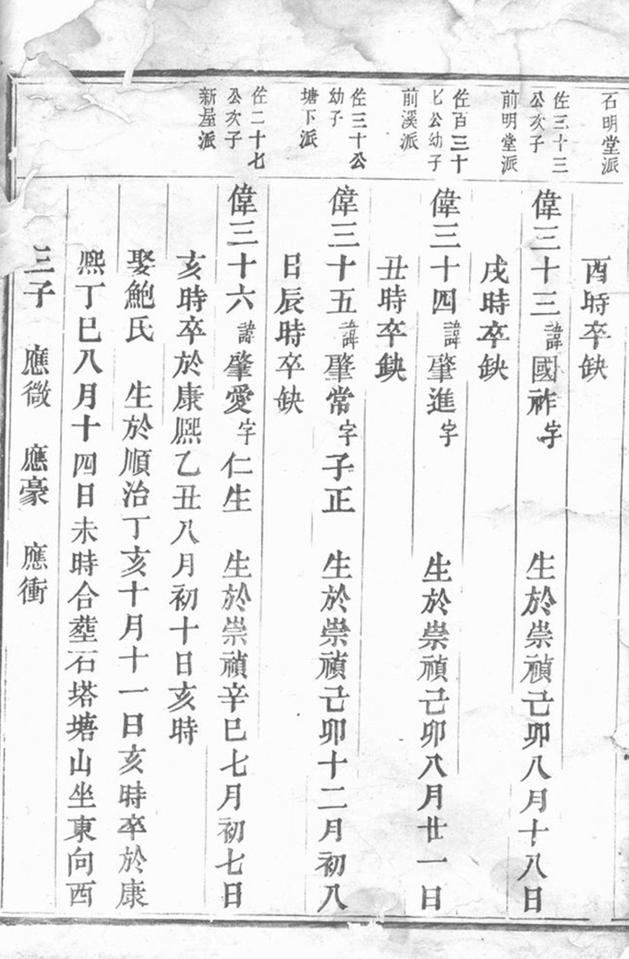 石明堂派
酉時卒缺
佐三十三
公次子
前明堂派
偉三十三 諱 國祚 字 生於崇禎己卯八月十八日
戌時卒缺
佐百三十
七公幼子
前溪派
偉三十四 諱 肇進 字 生於崇禎己卯八月廿一日
丑時卒缺
佐三十公
幼子
塘下派
偉三十五 諱 肇常 字 子正 生於崇禎己卯十二月初八
日辰時卒缺
佐二十七
公次子
新屋派
偉三十六 諱 肇愛 字 仁生 生於崇禎辛巳七月初七日
亥時卒於康熙乙丑八月初十日亥時
娶鮑氏 生於順治丁亥十月十一日亥時卒於康
熙丁巳八月十四日未時合塟石塔塘山坐東向西
三子 應微 應豪 應衝